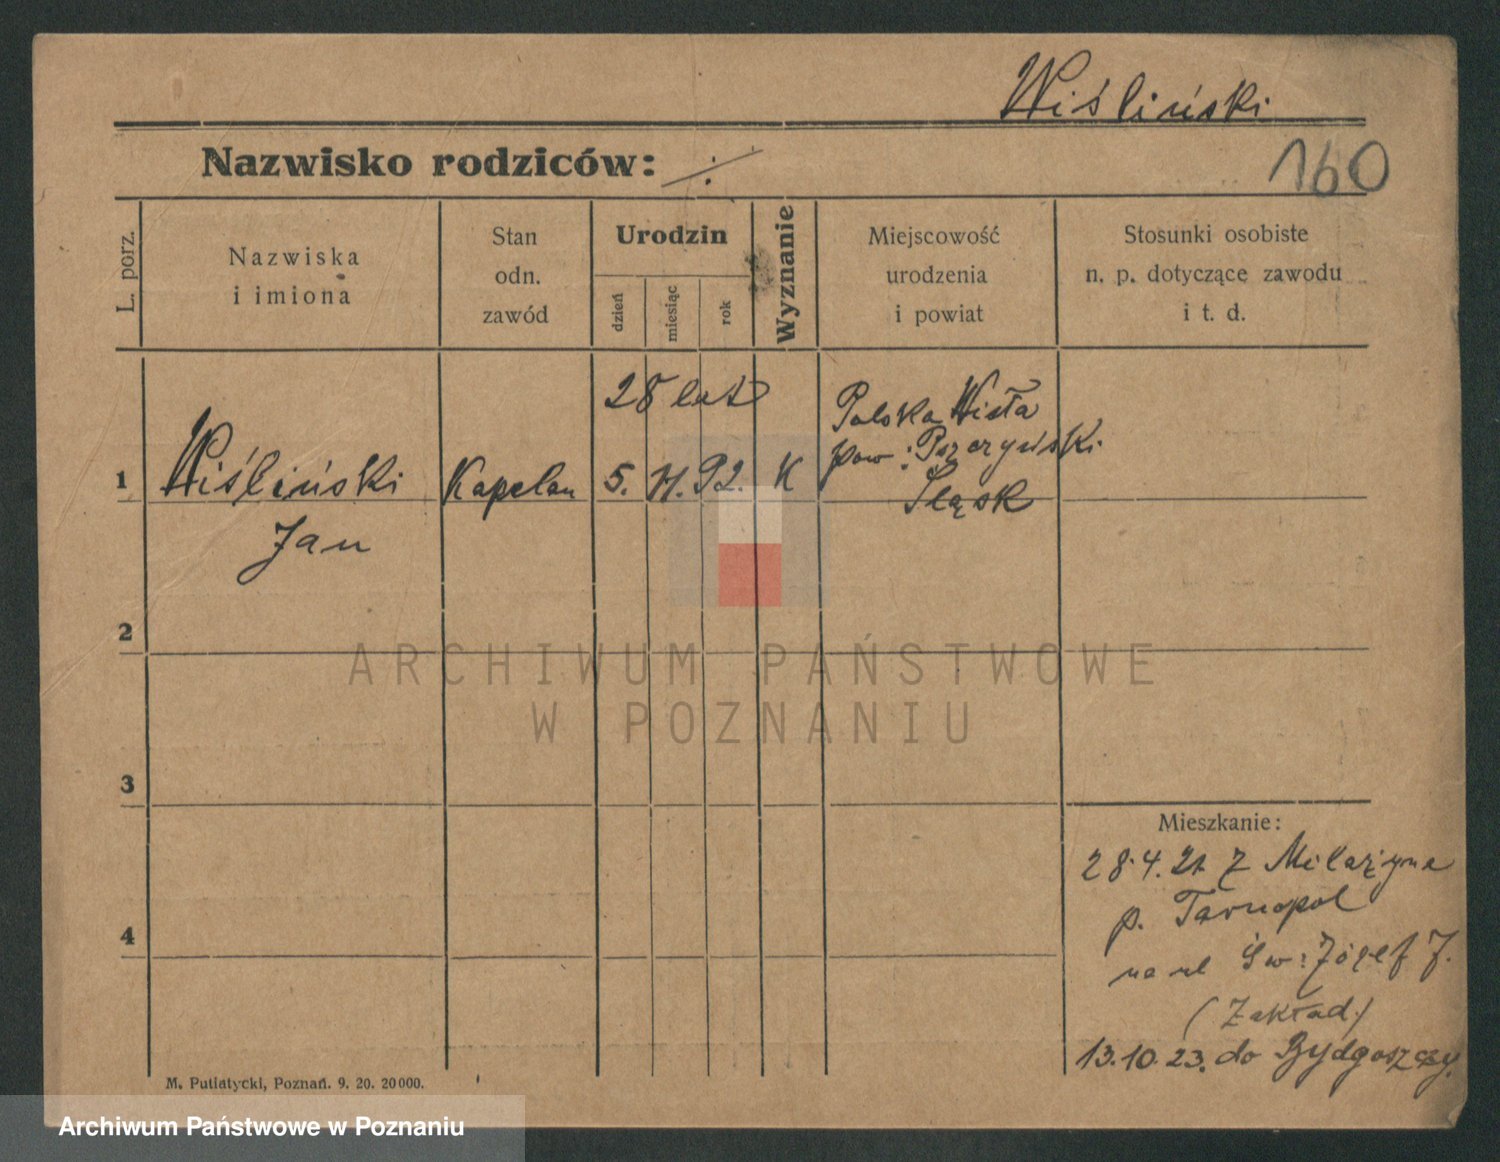 Wiśliński
Nazwisko rodziców: ./.
160
L. porz.
Nazwiska
i imiona
Stan
odn.
zawód
Urodzin
dzień
miesiąc
rok
Wyznanie
Miejscowość
urodzenia
i powiat
Stosunki osobiste
n. p. dotyczące zawodu
i t. d.
28 lat
1
Wiśliński
Jan
Kapelan
5. 11. 92.
K
Polska Wisła
pow: Pszczyński
Śląsk
2
3
4
Mieszkanie:
28.4.21 z
p. Tarnopol
na ul Św: Józef 7.
(Zakład)
13.10.23. do Bydgoszczy.
M. Putiatycki, Poznań. 9. 20. 20000.
ARCHIWUM PAŃSTWOWE
W POZNANIU
Archiwum Państwowe w Poznaniu